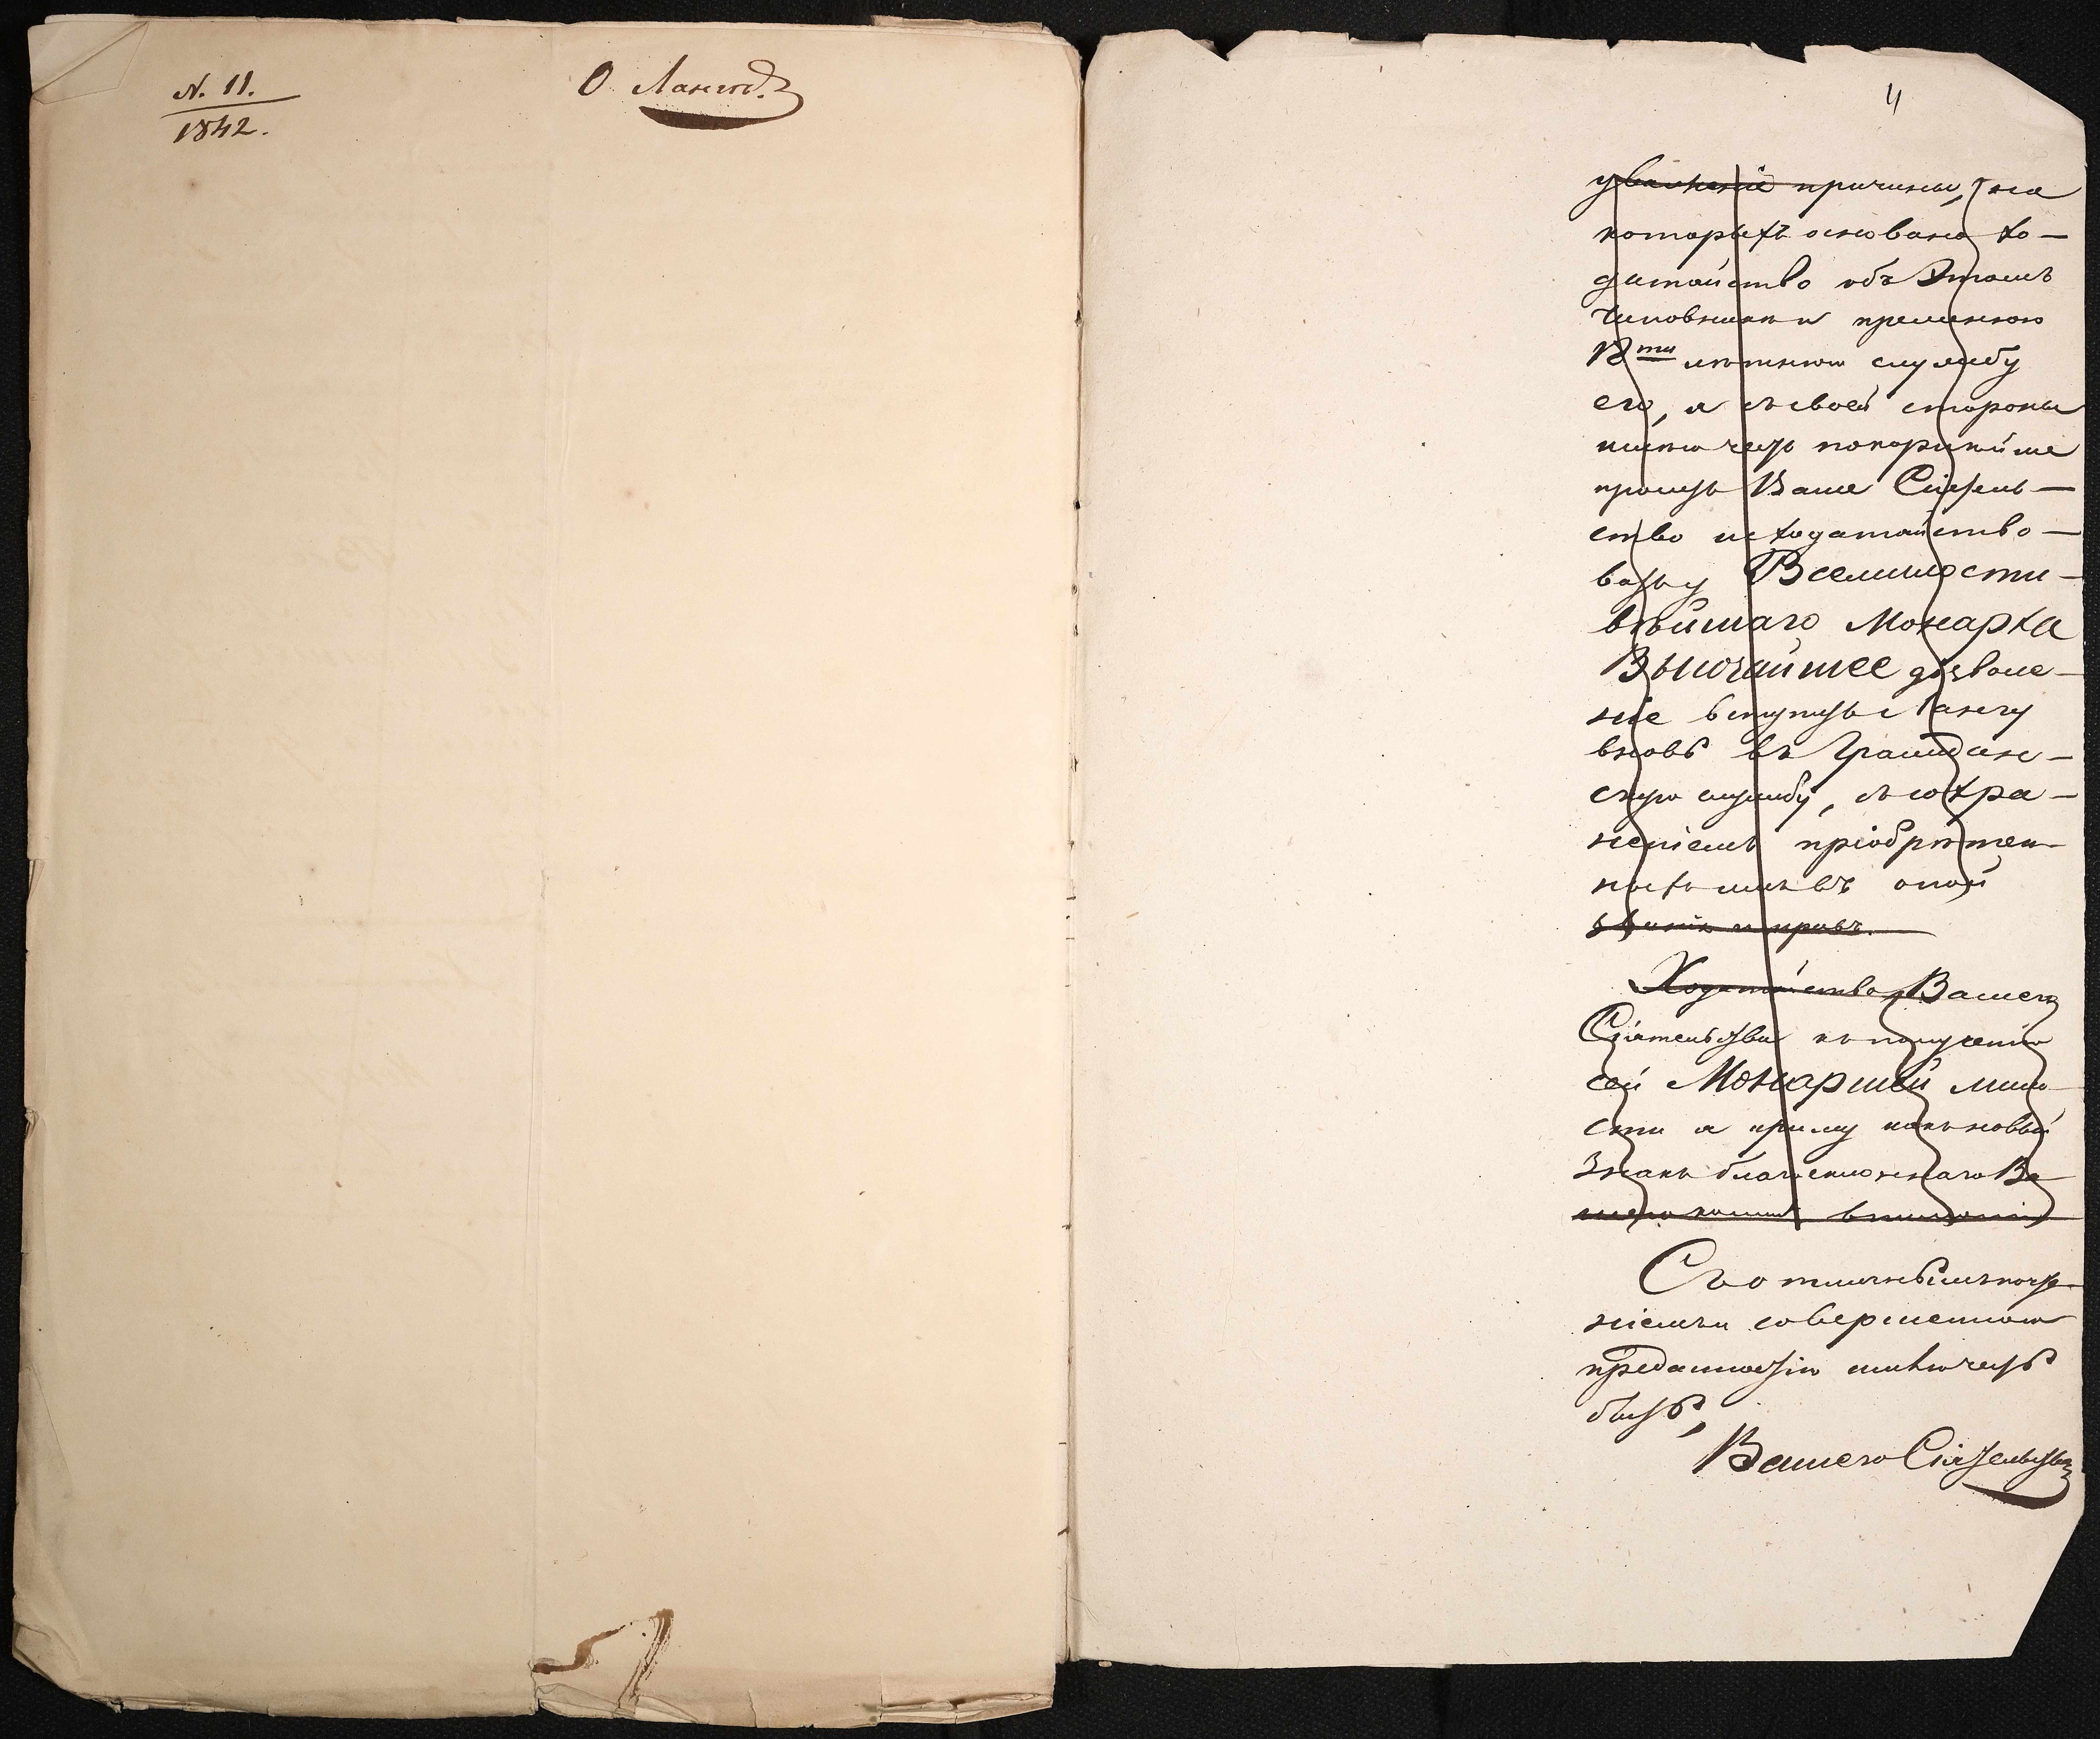 N. 11.
1842.
О Лангѣ.
4
уваженіе причины, на
которыхъ основано хо-
датайство объ этомъ
Чиновникѣ и прежнюю
18ти лѣтнюю службу
его, я съ своей стороны
имѣю честь покорнѣйше
просить Ваше Сіятель-
ство исходатайство-
вать у Всемилости-
вѣйшаго Монарха
Высочайшее дозволе-
ніе вступить Лангу
вновь въ Граждан-
скую службу, съ сохра-
неніемъ пріобрѣтен-
ныхъ имъ въ оной
званія и правъ.
Ходатайство Вашего
Сіятельства къ полученію
сей Монаршей мило-
сти я приму какъ новый
Знакъ благосклоннаго Ва-
шего ко мнѣ вниманія
Съ отличнымъ почте-
ніемъ и совершенною
преданностію имѣю честь
быть,
Вашего Сіятельства